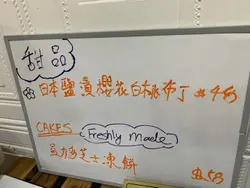 甜品
日本鹽漬櫻花白桃布丁 $48
CAKES Freshly Made
朱力多芝士凍餅
$58